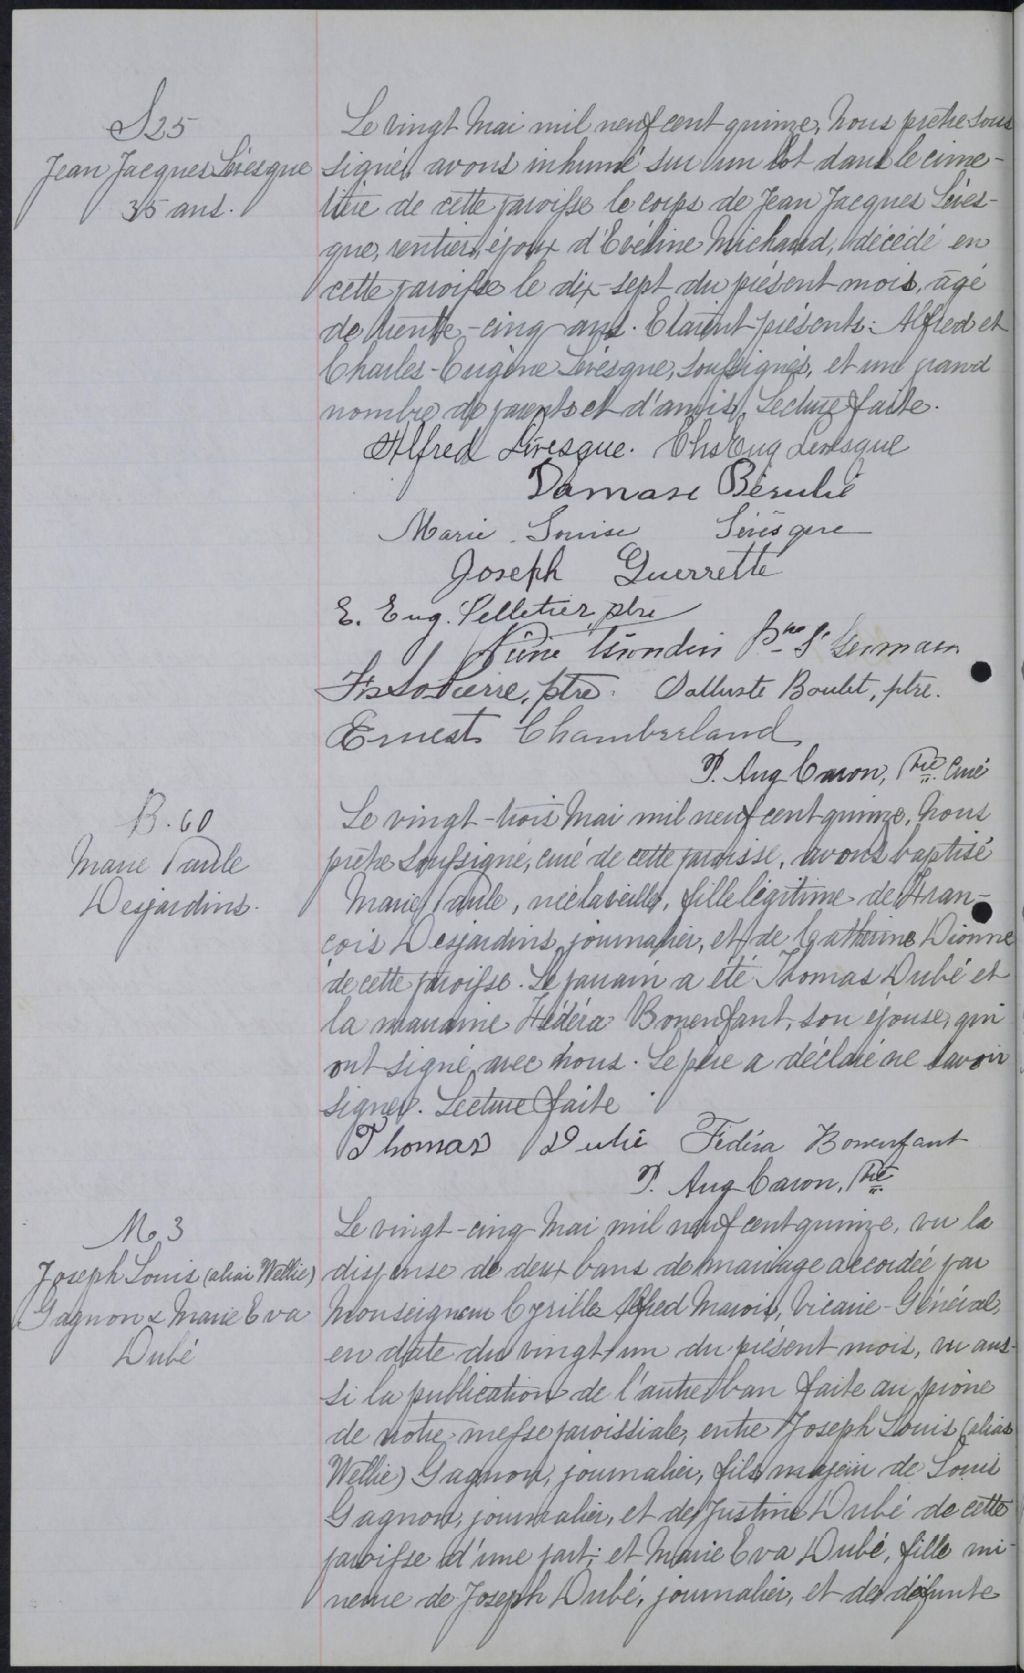 S 25
Jean Jacques Lévesque
35 ans.
Le vingt Mai mil neuf cent quinze, Nous prêtre sous
signé, avons inhumé sur un lot dans le cime-
tière de cette paroisse le corps de Jean Jacques Léves-
que, rentier, époux d'Evéline Michaud, décédé en
cette paroisse le dix-sept du présent mois, âgé
de trente-cinq ans. Etaient présents: Alfred et
Charles-Eugène Lévesque, soussignés, et un grand
nombre de parents et d'amis. Lecture faite.
Alfred Lévesque. Chs Eug Levesque
Damase Bérubé
Marie Louise Lévèsque
Joseph Guerrette
E. Eug. Pelletier, ptre
St Germain
ptre. Salluste Boulet, ptre.
Ernest Chamberland
P. Aug Caron, Ptre Curé
B. 60
Marie Paule
Desjardins.
Le vingt-trois Mai mil neuf cent quinze, Nous
prêtre soussigné, curé de cette paroisse, avons baptisé
Marie Paule, née la veille, fille légitime de Fran-
çois Desjardins, journalier, et de Catherine Dionne
de cette paroisse. Le parrain a été Thomas Dubé et
la marraine Fédéra Bonenfant, son épouse, qui
ont signé avec nous. Le père a déclaré ne savoir
signer. Lecture faite
Thomas Dubé Fedéra Bonenfant
P. Aug Caron, Ptre
M 3
Joseph Louis (alias Wellie)
Gagnon & Marie Eva
Dubé
Le vingt-cinq Mai mil neuf cent quinze, vu la
dispense de deux bans de mariage accordée par
Monseigneur Cyrille Alfred Marois, Vicaire-Général,
en date du vingt un du présent mois, vu aus-
si la publication de l'autre ban faite au prône
de notre messe paroissiale, entre Joseph Louis (alias
Wellie) Gagnon, journalier, fils majeur de Louis
Gagnon, journalier, et de Justine Dubé de cette
paroisse d'une part; et Marie Eva Dubé, fille mi-
neure de Joseph Dubé, journalier, et de défunte